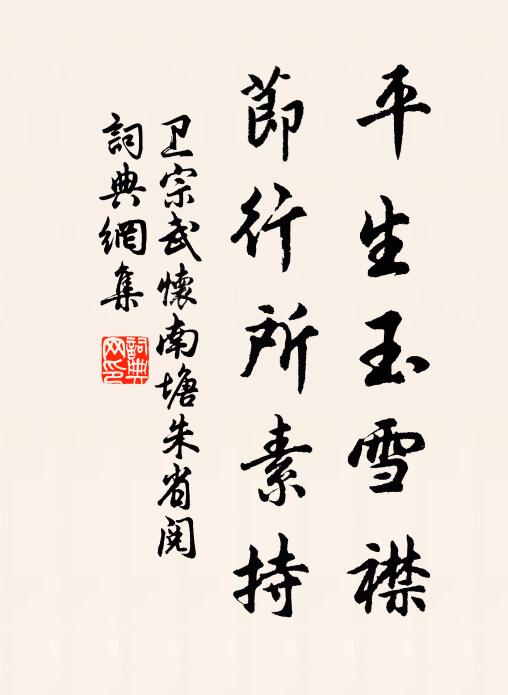 平生玉雪襟
節行所素持
卫宗武懷南塘朱省閱
詞典網集
詞典網印